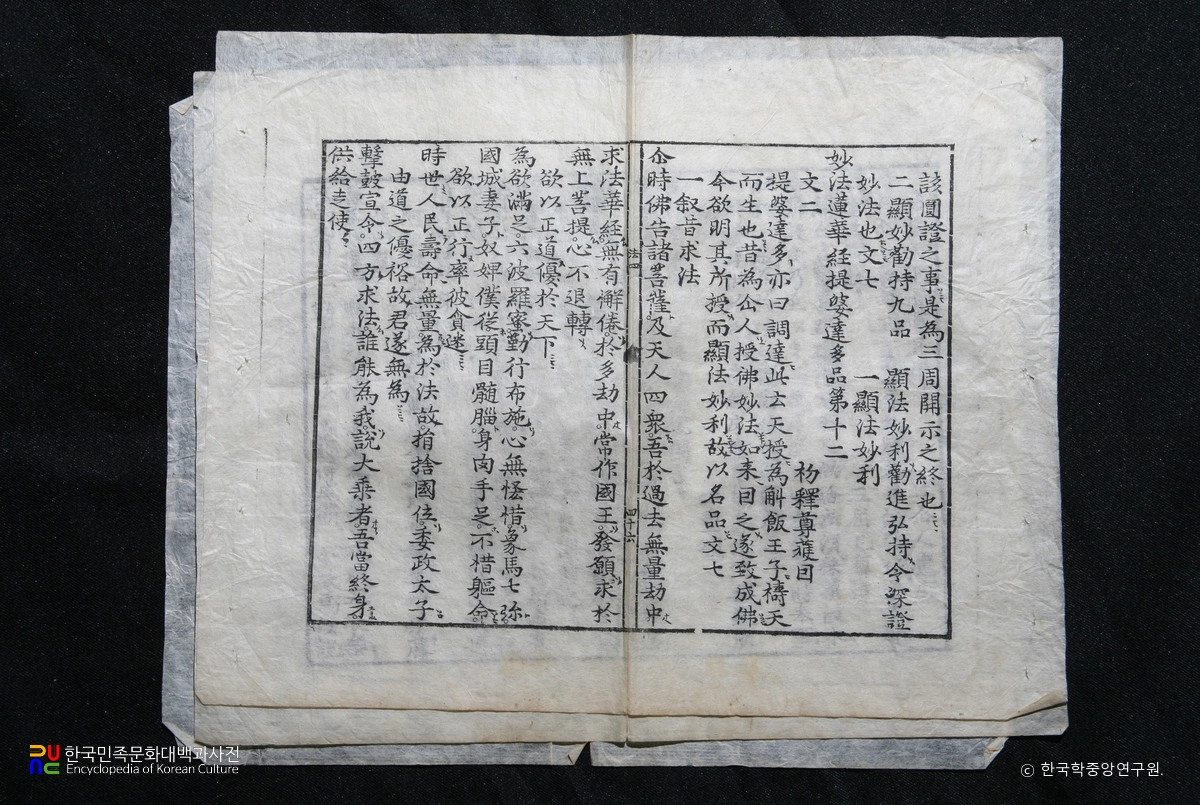 該圓證之事是為三周開示之終也
二顯妙勸持九品 顯法妙利勸進弘持令深證
妙法也文七 一顯法妙利
妙法蓮華經提婆達多品第十二
文二 初釋尊
提婆達多亦曰調達此云天授為斛飯王子禱天
而生也昔為仙人授佛妙法如来因之遂致成佛
今欲明其所授而顯法妙利故以名品文七
一叙昔求法
尒時佛告諸菩薩及天人四衆吾於過去無量劫中
法四
四十六
求法華經無有懈倦於多劫中常作國王發願求於
無上菩提心不退轉
欲以正道優於天下
為欲滿足六波羅蜜勤行布施心無恡惜象馬七珎
國城妻子奴婢僕從頭目髄腦身肉手足不惜軀命
欲以正行率彼貪迷
時世人民壽命無量為於法故捐捨國位委政太子
由道之優裕故君遂無為
擊皷宣令四方求法誰能為我說大乘者吾當終身
供給走使
한국민족문화대백과사전
Encyclopedia of Korean Culture
© 한국학중앙연구원.